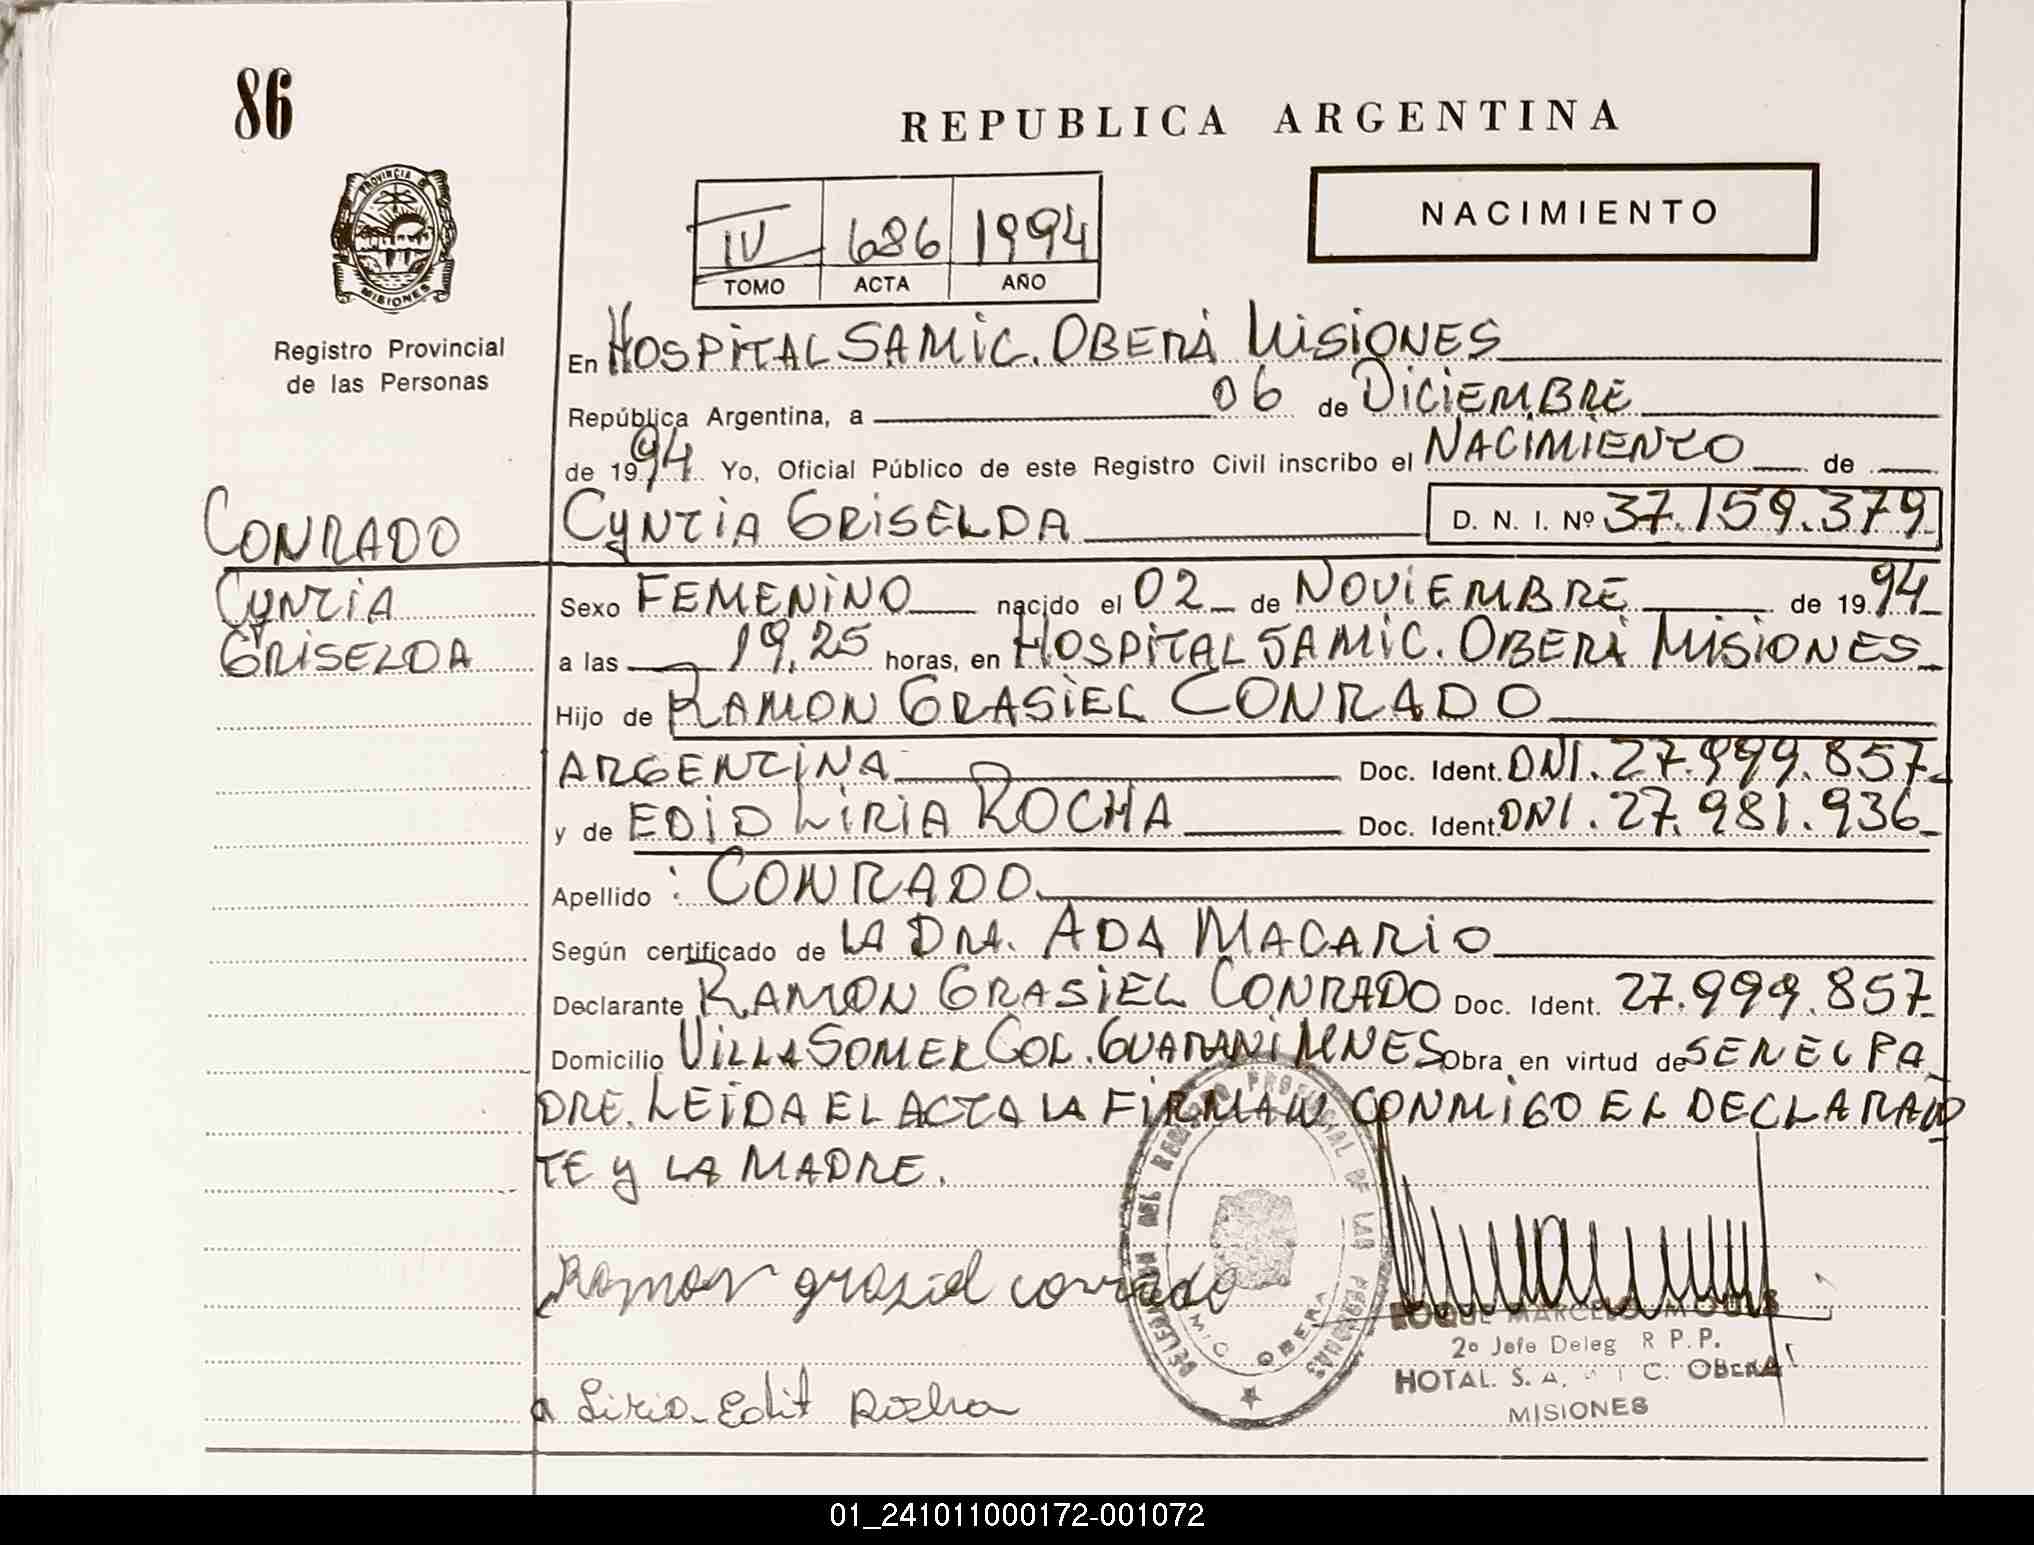 86
REPUBLICA ARGENTINA
PROVINCIA D
MISIONES
Registro Provincial
de las Personas
IV 686 1994
TOMO ACTA AÑO
NACIMIENTO
En HOSPITAL SAMIC. OBERA MISIONES
República Argentina, a 06 de DICIEMBRE
de 1994 Yo, Oficial Público de este Registro Civil inscribo el NACIMIENTO de
CONRADO
CYNTIA
GRISELDA
CYNTIA GRISELDA D. N. I. Nº 37.159.379
Sexo FEMENINO nacido el 02 de NOVIEMBRE de 1994
a las 19,25 horas, en HOSPITAL SAMIC. OBERA MISIONES
Hijo de RAMON GRASIEL CONRADO
ARGENTINA Doc. Ident. DNI. 27.999.857
y de EDID LIRIA ROCHA Doc. Ident. DNI. 27.981.936
Apellido : CONRADO
Según certificado de LA DRA. ADA MACARIO
Declarante RAMON GRASIEL CONRADO Doc. Ident. 27.999.857
Domicilio VILLA SOMER COL. GUARANI MNES Obra en virtud de SER EL PA
DRE. LEIDA EL ACTA LA FIRMAN CONMIGO EL DECLARAN
TE Y LA MADRE.
DEL REGISTRO PROVINCIAL DE LAS PERSONAS
OBERA
Ramon grasiel conrado
ROQUE MARCELO
2º Jefe Deleg R P.P.
HOTAL. S. A. I C. OBERA
MISIONES
Liria Edit Rocha
01_241011000172-001072